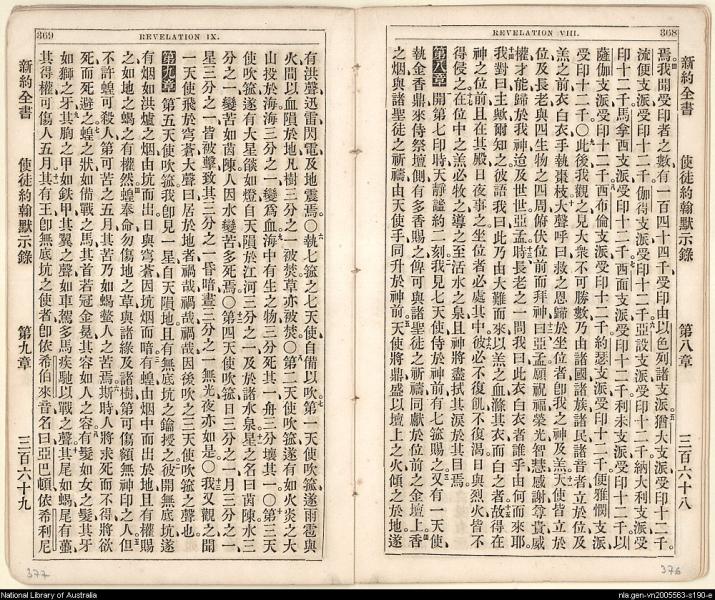 368
REVELATION VIII.
新約全書 使徒約翰默示錄 第八章 三百六十八
焉我聞受印者之數有一百四十四千受印由以色列諸支派猶大支派受印十二千
流便支派受印十二千伽得支派受印十二千亞設支派受印十二千納大利支派受
印十二千馬拿西支派受印十二千西面支派受印十二千利未支派受印十二千以
薩伽支派受印十二千西布倫支派受印十二千約瑟支派受印十二千便雅憫支派
受印十二千〇此後我觀之見大衆不可勝數乃由諸國諸族諸民諸音者立於位及
羔之前衣白衣手執棗枝大聲呼曰救之恩歸於坐位者卽我之神及羔天使皆立於
位及長老與四生物之四周俯伏位前而拜神曰亞孟願祝福榮光智慧感謝尊貴威
權才能歸於我神迨及世世亞孟時長老之一問我曰此衣白衣者誰乎由何而來耶
我對曰主歟爾知之彼語我曰此乃由大難而來以羔之血滌其衣而白之者故得在
神之位前且在其殿日夜事之坐位者必處其中彼必不復飢不復渴日與烈火皆不
得侵之在位中之羔必牧之導之至活水之泉且神將盡拭其淚於其目焉
第八章 開第七印時天靜謐約二刻我見七天使侍於神前有七箛賜之又有一天使
執金香鼎來侍祭壇側有多香賜之俾可與諸聖徒之祈禱同獻於位前之金壇上香
之烟與諸聖徒之祈禱由天使手同升於神前天使將鼎盛以壇上之火傾之於地遂
376
369
REVELATION IX.
有洪聲迅雷閃電及地震焉〇執七箛之七天使自備以吹第一天使吹箛遂雨雹與
火間以血隕於地凡樹三分之一被焚草亦被焚〇第二天使吹箛遂有如火炎之大
山投於海海三分之一變爲血海中有生之物三分死其一舟三分壞其一〇第三天
使吹箛遂有大星燄如燈自天隕於江河三分之一及於諸水泉星之名曰茵蔯水三
分之一變苦如茵蔯人因水變苦多死焉〇第四天使吹箛日三分之一月三分之一
星三分之一皆被擊致其三分之一昏暗晝三分之一無光夜亦如是〇我又觀之聞
一天使飛於穹蒼大聲曰居於地者禍哉禍哉禍哉因後吹之三天使吹箛之聲也
第九章 第五天使吹箛我卽見一星自天隕地且有無底坑之鑰授之彼開無底坑遂
有烟如洪爐之烟由坑而出日與穹蒼因坑烟而暗有蝗由烟中而出於地且有權賜
之如地之蝎之有權然蝗奉命勿傷地之草與諸綠及諸樹第可傷額無神印之人但
不許蝗可殺人第可苦之五月其苦乃如蝎螫人之苦焉斯時人將求死而不得將欲
死而死避之蝗之狀如備戰之馬其首若冠金冕其容如人之容有髮如女之髮其牙
如獅之牙其胸之甲如鉄甲其翼之聲如車駕多馬疾馳以戰之聲其尾如蝎尾有蠆
其得權可傷人五月其有王卽無底坑之使者卽依希伯來音名曰亞巴頓依希利尼
新約全書 使徒約翰默示錄 第九章 三百六十九
377
National Library of Australia
nla.gen-vn2005563-s190-e